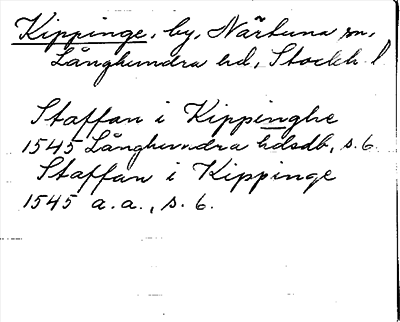 Kippinge, by, Närtuna sn,
Långhundra hd, Stockh. l.
Staffan i Kippinghe
1545 Långhundra hdsdb, s. 6.
Staffan i Kippinge
1545 a.a., s. 6.